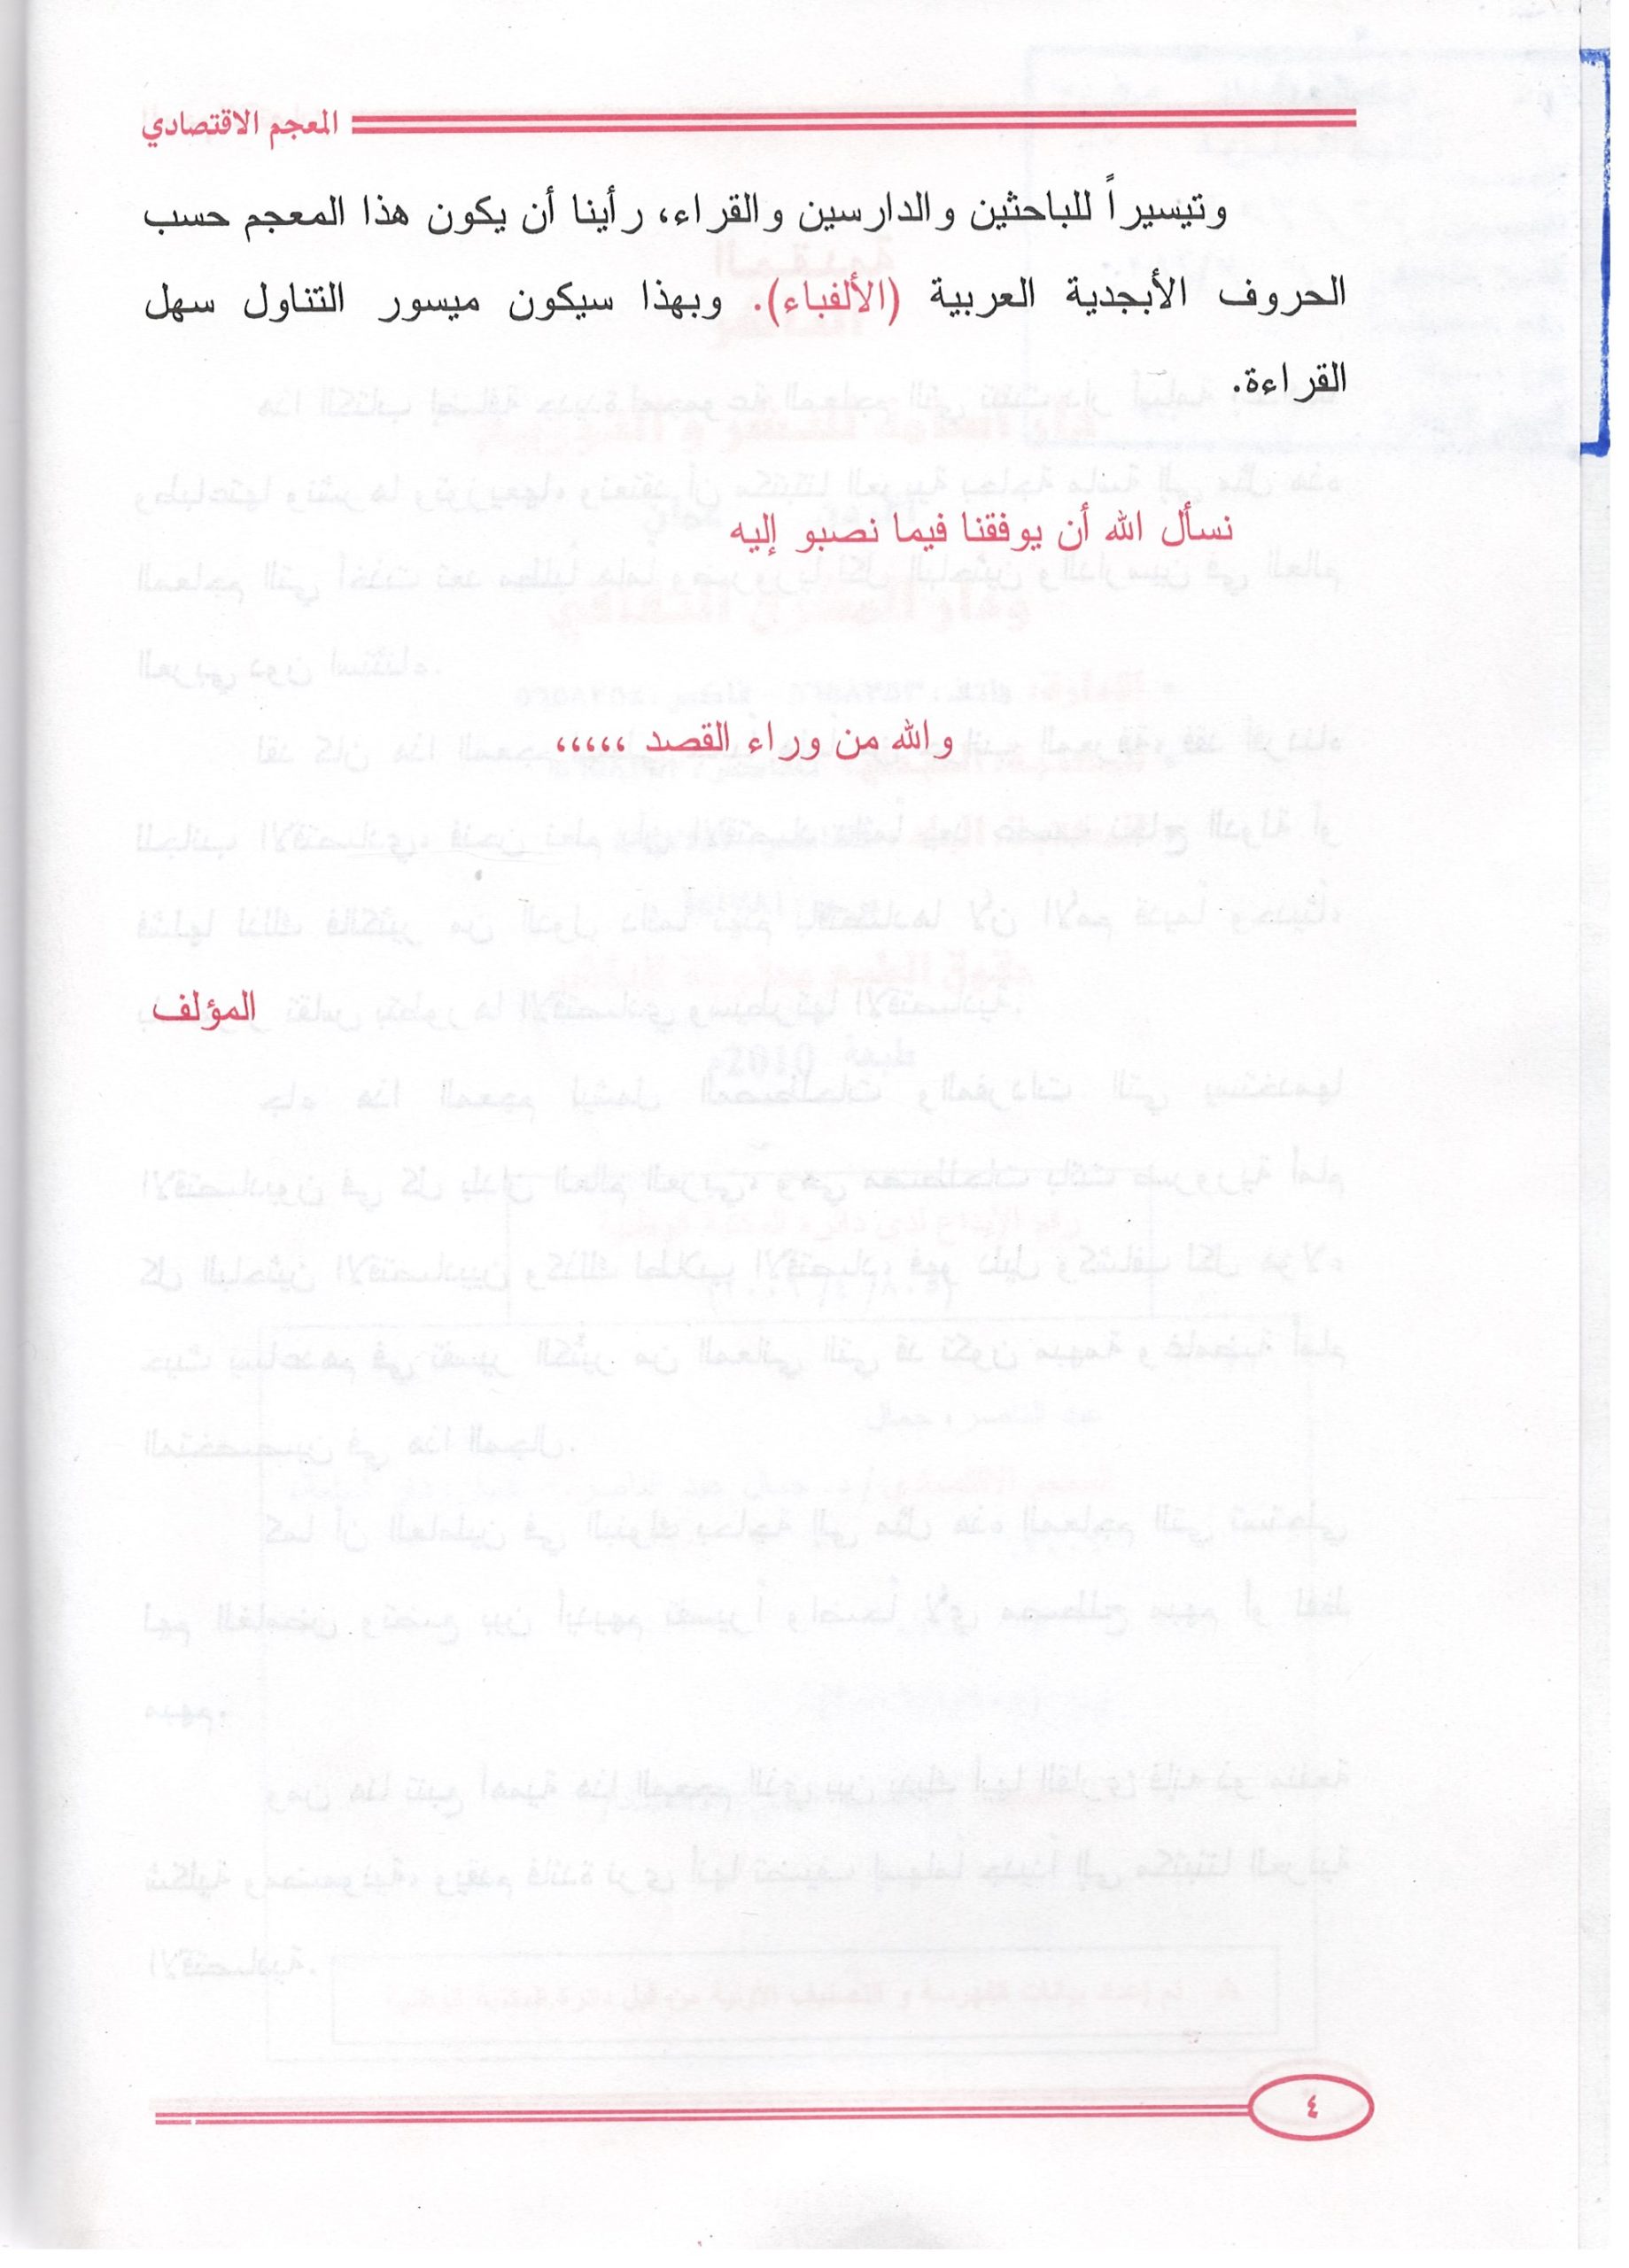 المعجم الاقتصادي
وتيسيراً للباحثين والدارسين والقراء، رأينا أن يكون هذا المعجم حسب
الحروف الأبجدية العربية (الألفباء). وبهذا سيكون ميسور التناول سهل
القراءة.
نسأل الله أن يوفقنا فيما نصبو إليه
والله من وراء القصد ،،،،،
المؤلف
٤